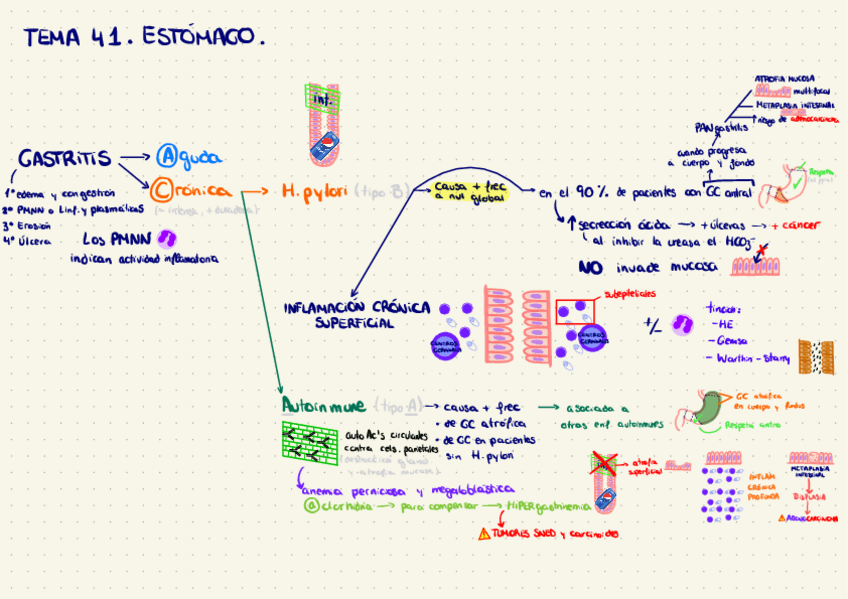 TEMA 41. ESTÓMAGO.
GASTRITIS
Aguda
Crónica
1º edema y congestión
2º PMNN o Linf. y plasmáticas
3º Erosión
4º Úlcera
Los PMNN
indican actividad inflamatoria
int.
H. pylori (tipo B)
causa + frec
a nivl global
en el 90% de pacientes con GC antral
cuando progresa
a cuerpo y fondo
PANgastritis
ATROFIA MUCOSA
multifocal
METAPLASIA INTESTINAL
↑ riesgo de adenocarcinoma
Respeta
↑ secreción ácida → + úlceras → + cáncer
al inhibir la ureasa el HCO3-
NO invade mucosa
INFLAMACIÓN CRÓNICA
SUPERFICIAL
CENTROS
GERMINALES
subepiteliales
CENTROS
GERMINALES
+/-
tinción:
- HE
- Giemsa
- Warthin-Starry
Autoinmune (tipo A)
causa + frec
• de GC atrófica
• de GC en pacientes
sin H. pylori
asociada a
otras enf. autoinmunes
GC atrófica
en cuerpo y fundus
Respeta antro
auto Ac's circulares
contra cels. parietales
anemia perniciosa y megaloblástica
aclorhidria → para compensar → HiPERgastrinemia
TUMORES SNED y carcinoides
atrofia
superficial
INFLAM
CRÓNICA
PROFUNDA
METAPLASIA
INTESTINAL
DISPLASIA
ADENOCARCINOMA